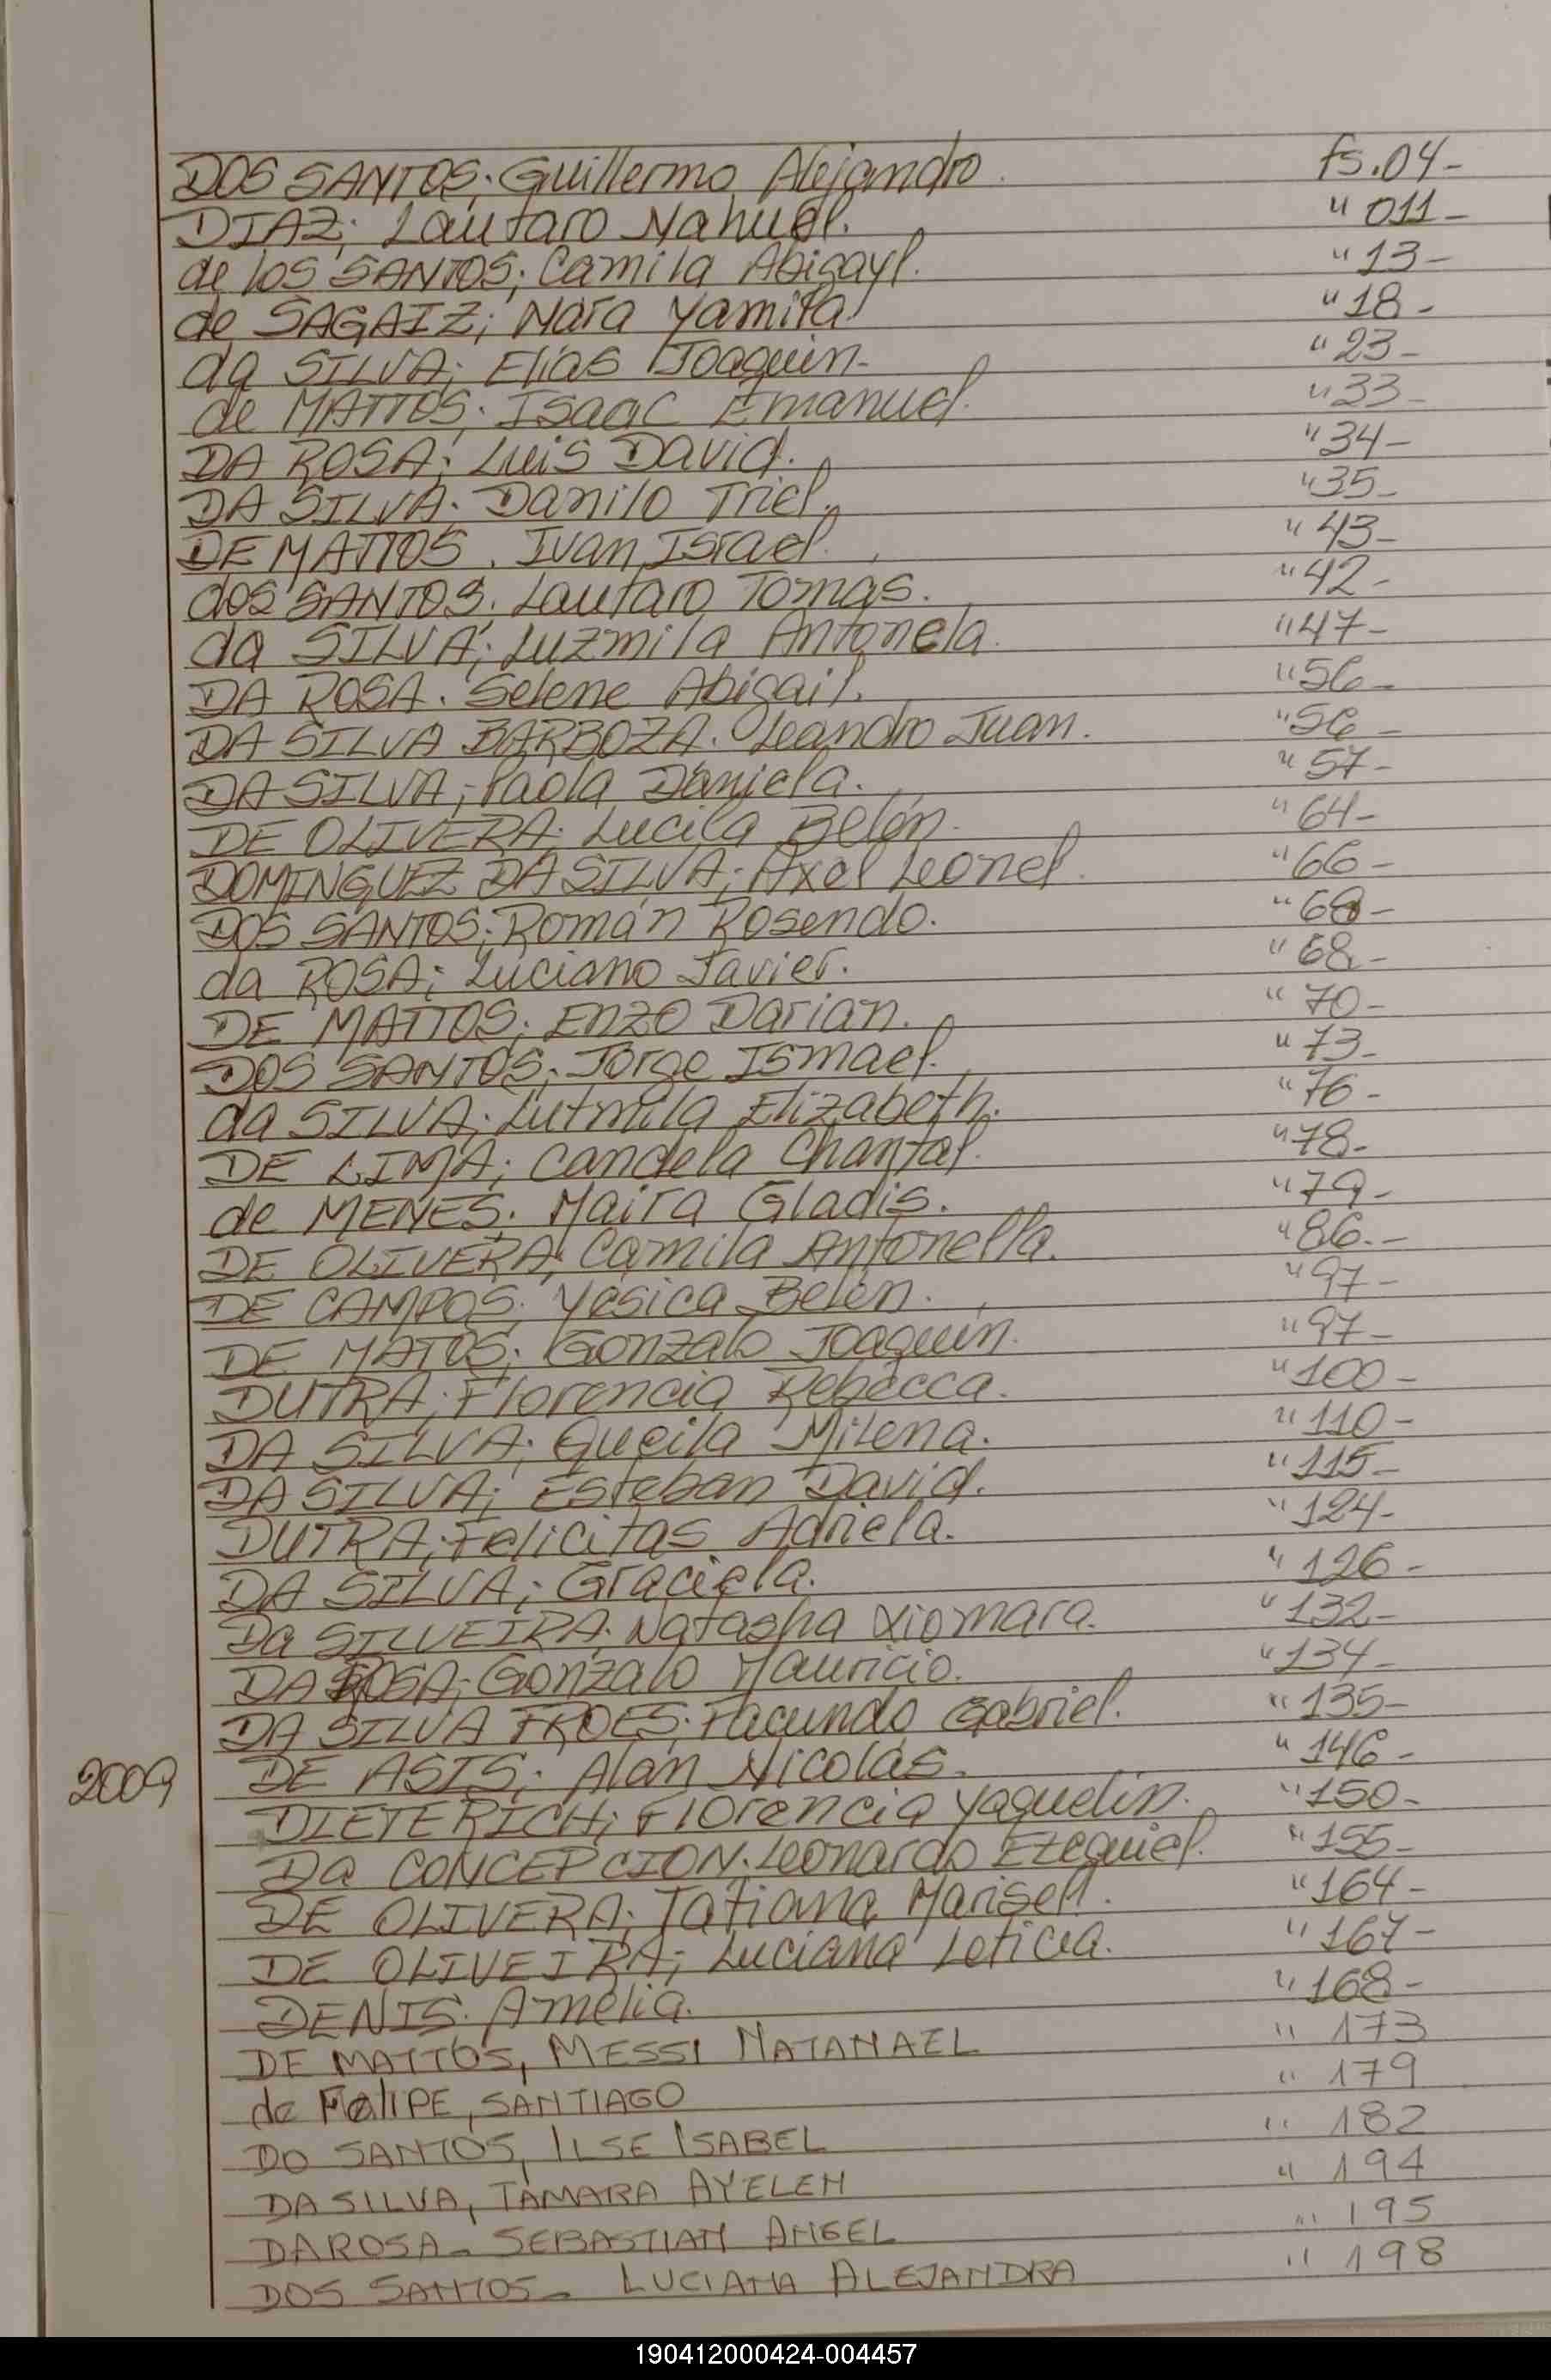 DOS SANTOS; Guillermo Alejandro. fs. 04-
DIAZ; Lautaro Nahuel. " 011-
de los SANTOS; Camila Abigayl. " 13-
de SAGAIZ; Nara Yamila " 18-
da SILVA; Elias Joaquin- " 23-
de MATTOS; Isaac Emanuel. " 33-
DA ROSA; Luis David. " 34-
DA SILVA. Danilo Triel. " 35-
DE MATTOS. Ivan Israel. " 43-
dos SANTOS. Lautaro Tomas. " 42-
da SILVA; Luzmila Antonela. " 47-
DA ROSA. Selene Abigail. " 56-
DA SILVA BARBOZA. Leandro Juan. " 56-
DA SILVA; Paola Daniela. " 57-
DE OLIVERA; Lucila Belén. " 64-
DOMINGUEZ DA SILVA; Axel Leonel. " 66-
DOS SANTOS; Román Rosendo. " 68-
da ROSA; Luciano Javier. " 68-
DE MATTOS; Enzo Darian. " 70-
DOS SANTOS; Jorge Ismael. " 73-
da SILVA; Lutmila Elizabeth. " 76-
DE LIMA; Candela Chantal. " 78-
de MENES. Maira Gladis. " 79-
DE OLIVERA; Camila Antonella. " 86.-
DE CAMPOS. Yesica Belén. " 97-
DE MATOS; Gonzalo Joaquin. " 97-
DUTRA; Florencia Rebecca. " 100-
DA SILVA; Queila Milena. " 110-
DA SILVA; Esteban David. " 115-
DUTRA; Felicitas Adriela. " 124-
DA SILVA; Graciela. " 126-
Da SILVEIRA. Natasha Xiomara. " 132-
DA ROSA; Gonzalo Mauricio. " 134-
DA SILVA FROES; Facundo Gabriel. " 135-
2009 DE ASIS; Alan Nicolás. " 146-
DIETERICH; Florencia Yaquelin. " 150-
Da CONCEPCION. Leonardo Ezequiel. " 155-
DE OLIVERA; Tatiana Marisell. " 164-
DE OLIVEIRA; Luciana Leticia. " 167-
DENIS. Amelia. " 168-
DE MATTOS, MESSI NATANAEL " 173
de FeliPE, SANTIAGO " 179
DO SANTOS, ILSE ISABEL " 182
DA SILVA, TAMARA AYELEN " 194
DAROSA- SEBASTIAN ANGEL " 195
DOS SANTOS- LUCIANA ALEJANDRA " 198
190412000424-004457